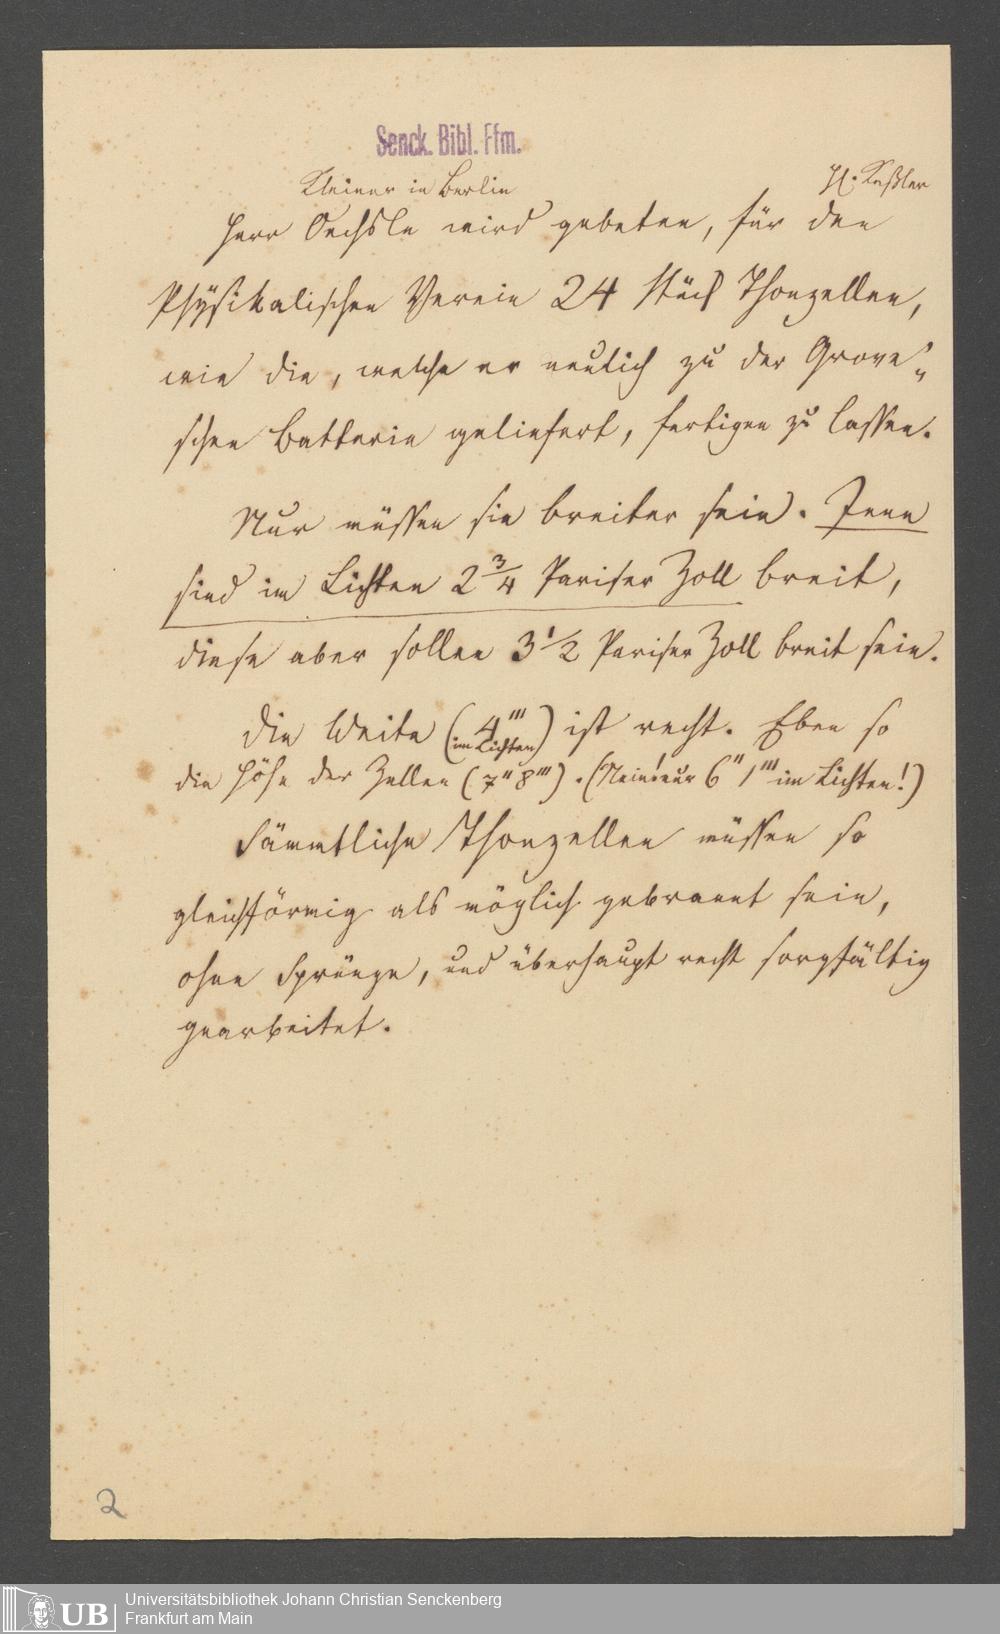 Senck. Bibl. Ffm.
Kleiner in Berlin
H. Keßler
Herr Oechsle wird gebeten, für den
Physikalischen Verein 24 Stück Thonzellen,
wie die, welche er neulich zu der Grove'
schen Batterie geliefert, fertigen zu lassen.
Nur müssen sie breiter sein. Jene
sind im Lichten 2 3/4 Pariser Zoll breit,
diese aber sollen 3 1/2 Pariser Zoll breit sein.
Die Weite (4''' im Lichten) ist recht. Eben so
die Höhe der Zellen (7'' 8'''). (Nein! nur 6'' 1''' im Lichten!)
Sämmtliche Thonzellen müssen so
gleichförmig als möglich gebrannt sein,
ohne Sprünge, und überhaupt recht sorgfältig
gearbeitet.
2
UB
Universitätsbibliothek Johann Christian Senckenberg
Frankfurt am Main